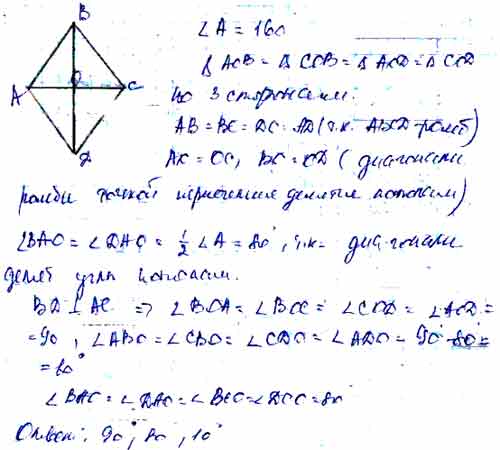 B
∠A = 160
Δ AOB = Δ COB = Δ AOD = Δ COD
O
A C
по 3 сторонам.
AB = BC = DC = AD (т.к. ABCD ромб)
D
AO = OC, BO = OD (диагонали
ромба точкой пересечения делятся пополам)
∠BAO = ∠DAO = 1/2 ∠A = 80°, т.к. диагонали
делят углы пополам.
BD ⊥ AC ⇒ ∠BOA = ∠BOC = ∠COD = ∠AOD =
= 90, ∠ABO = ∠CBO = ∠CDO = ∠ADO = 90°-80°=
= 10°
∠BAO = ∠DAO = ∠BCO = ∠DCO = 80
Ответ: 90°, 80, 10°